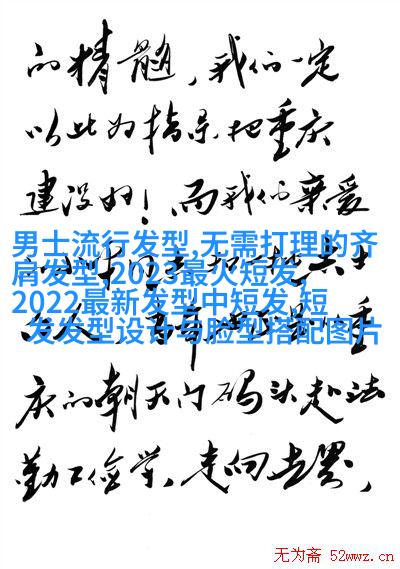 的精髓，我们一定
以此为指导把重庆
建设好！而我们亲爱
男士流行发型,无需打理的齐
肩发型,2023最火短发,
2022最新发型中短发,短
发发型设计与脸型搭配图片
庆的朝天门码头赴法
勤工俭学，走向世界，
无为斋 52wwz.cn